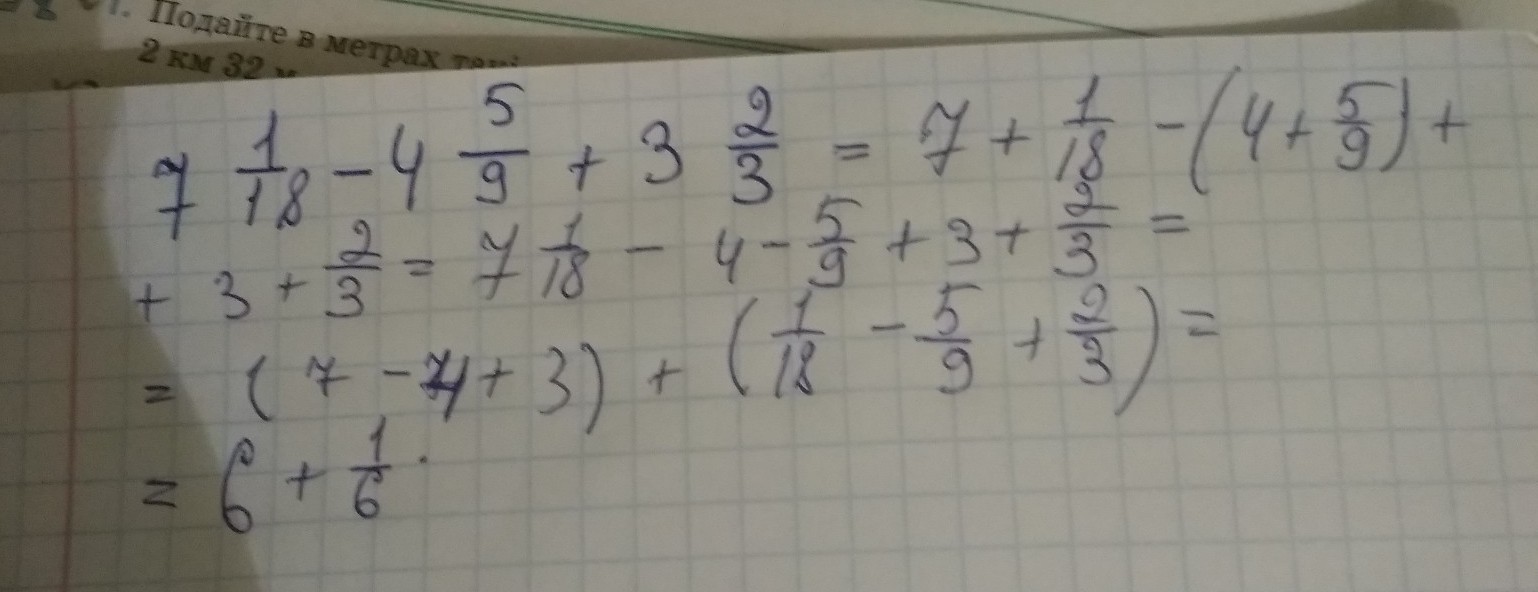 1. Подайте в метрах такі
2 км 32 м
7 1/18 - 4 5/9 + 3 2/3 = 7 + 1/18 - (4 + 5/9) +
+ 3 + 2/3 = 7 1/18 - 4 - 5/9 + 3 + 2/3 =
= (7 - 4 + 3) + (1/18 - 5/9 + 2/3) =
= 6 + 1/6.